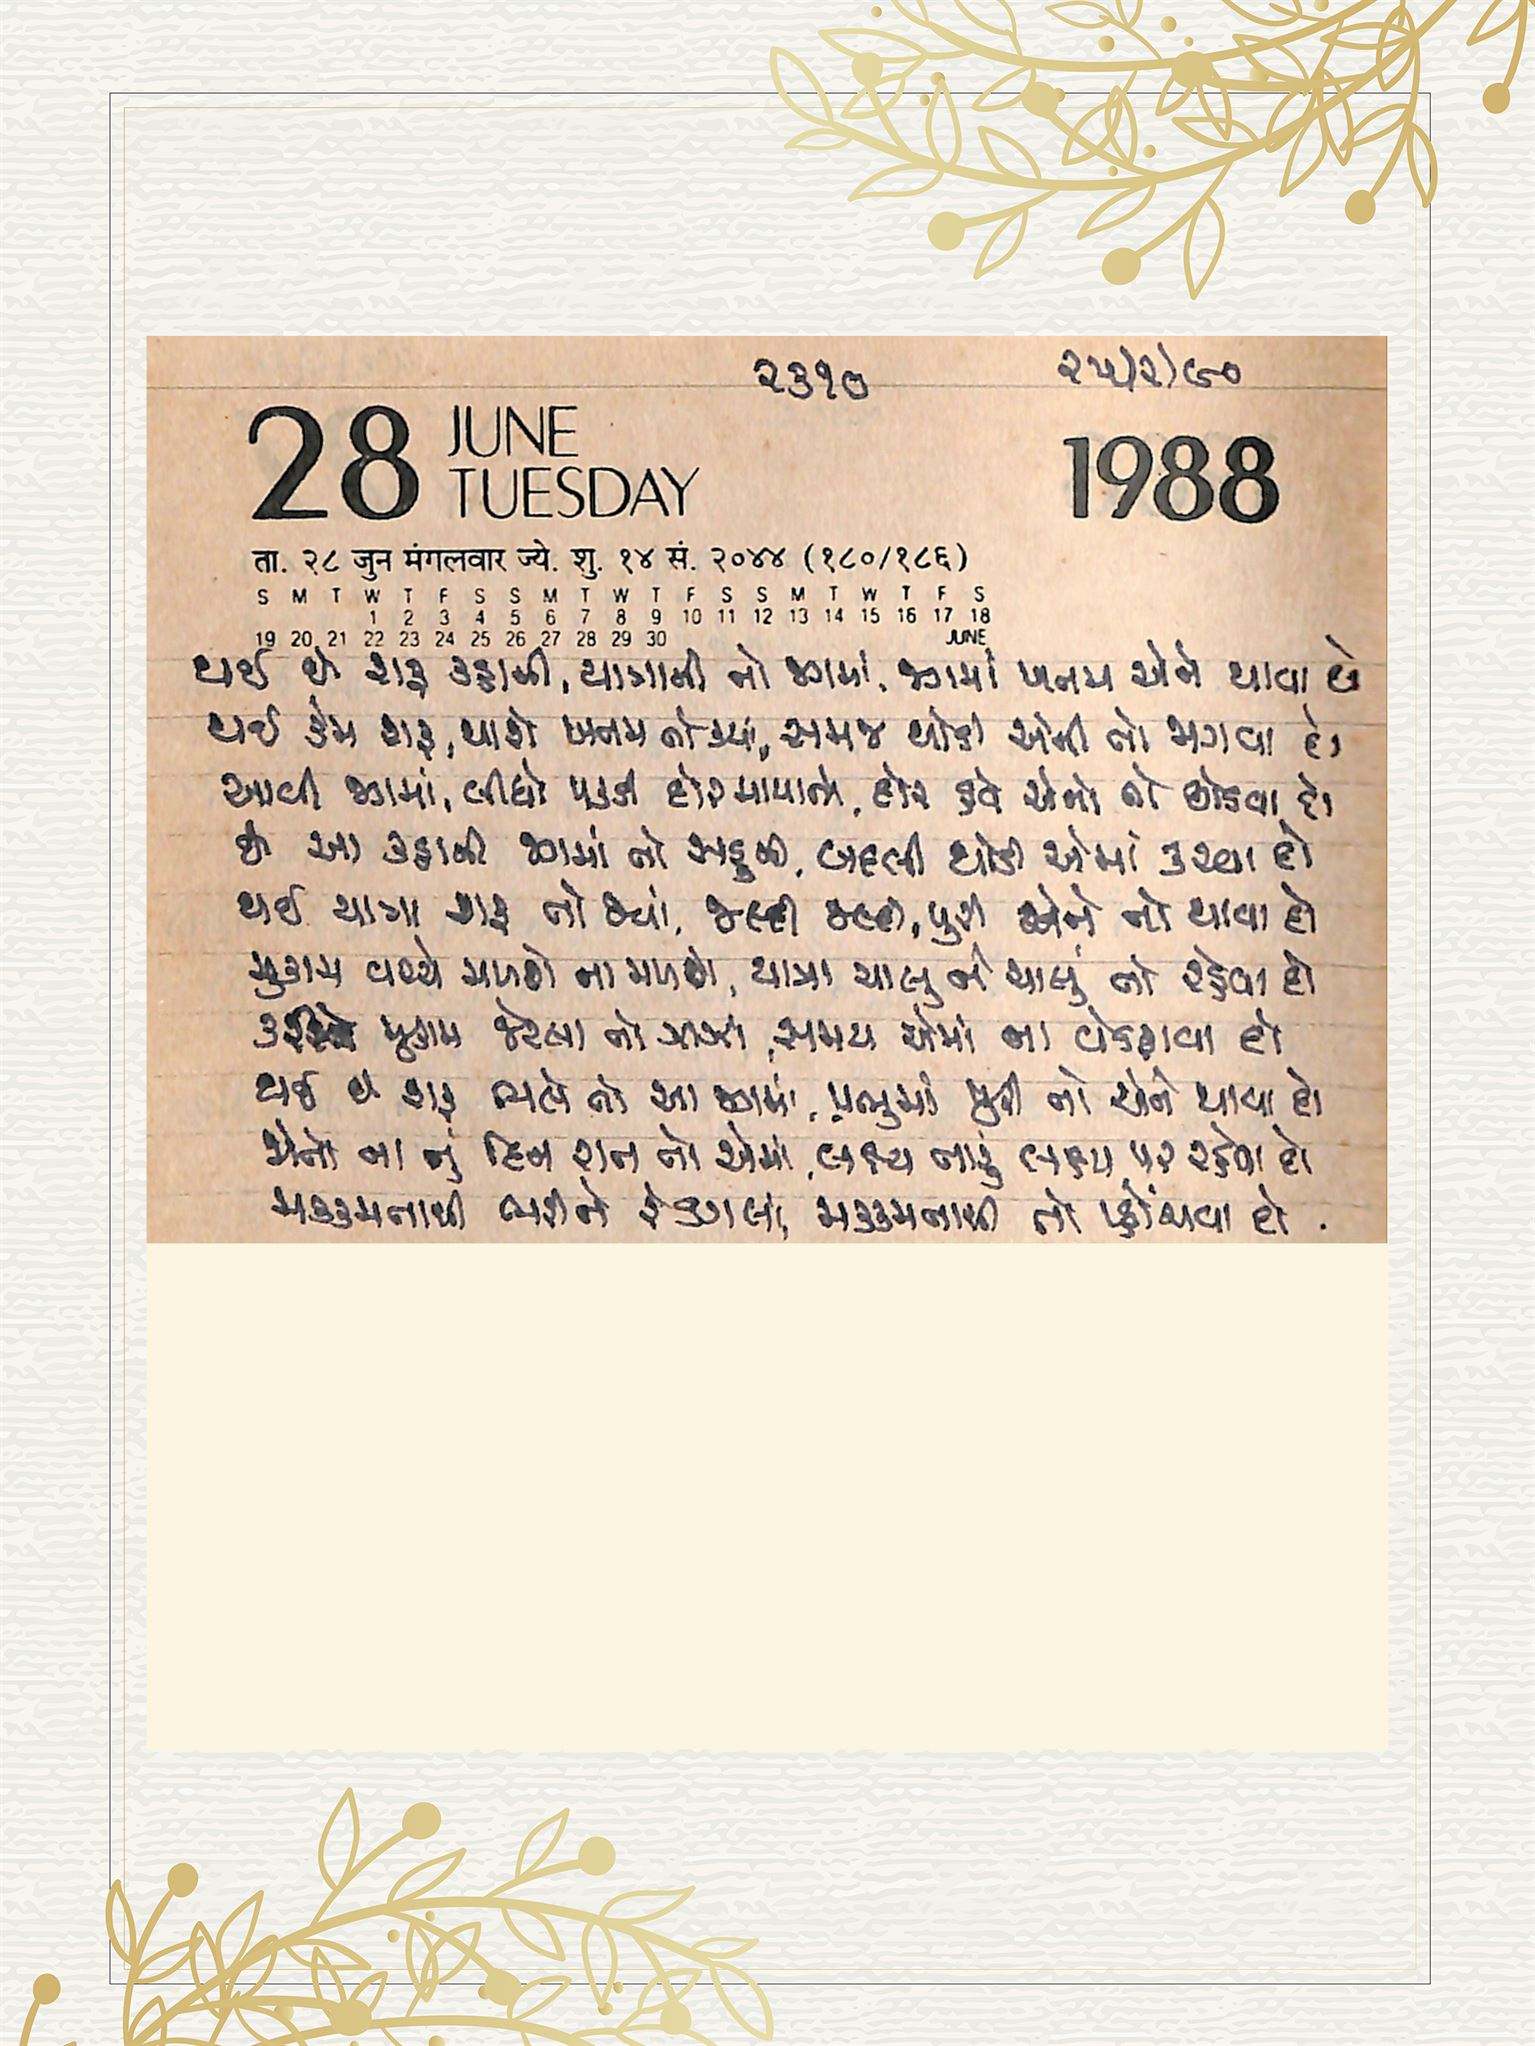 ૨૩૧૦ ૨૫)૨)૯૦
28 JUNE TUESDAY 1988
ता. २८ जुन मंगलवार ज्ये. शु. १४ सं. २०४४ (१८०/१८६)
S M T W T F S S M T W T F S S M T W T F S
1 2 3 4 5 6 7 8 9 10 11 12 13 14 15 16 17 18
19 20 21 22 23 24 25 26 27 28 29 30 JUNE
થઈ છે શરૂ કહાની, યાત્રાની તો જગમાં, જગમાં ખતમ એને થાવા દો
થઈ કેમ શરૂ, થાશે ખતમ તો ક્યાં, સમજ થોડી એની તો મળવા દો
આવી જગમાં, લીધો પકડી દોર માયાનો, દોર હવે એનો તો છોડવા દો
છે આ કહાની જગમાં તો અટૂળી, બદલી થોડી એમાં કરવા દો
થઈ યાત્રા શરૂ તો જ્યાં, જલ્દી જલ્દી, પુરી એને તો થાવા દો
મુકામ વચ્ચે મળશે ના મળશે, યાત્રા ચાલુ ને ચાલું તો રહેવા દો
મુકામ જેટલા તો ઝાઝા, સમય એમાં ના વેડફાવા દો
થઈ છે શરૂ ભલે તો આ જગમાં, પ્રભુમાં પુરી તો એને થાવા દો
જોતો ના તું દિન રાત તો એમાં, લક્ષ્ય તારું લક્ષ્ય પર રહેવા દો
મક્કમતાથી ભરીને ડગલાં, મક્કમતાથી તો પ્હોંચવા દો .